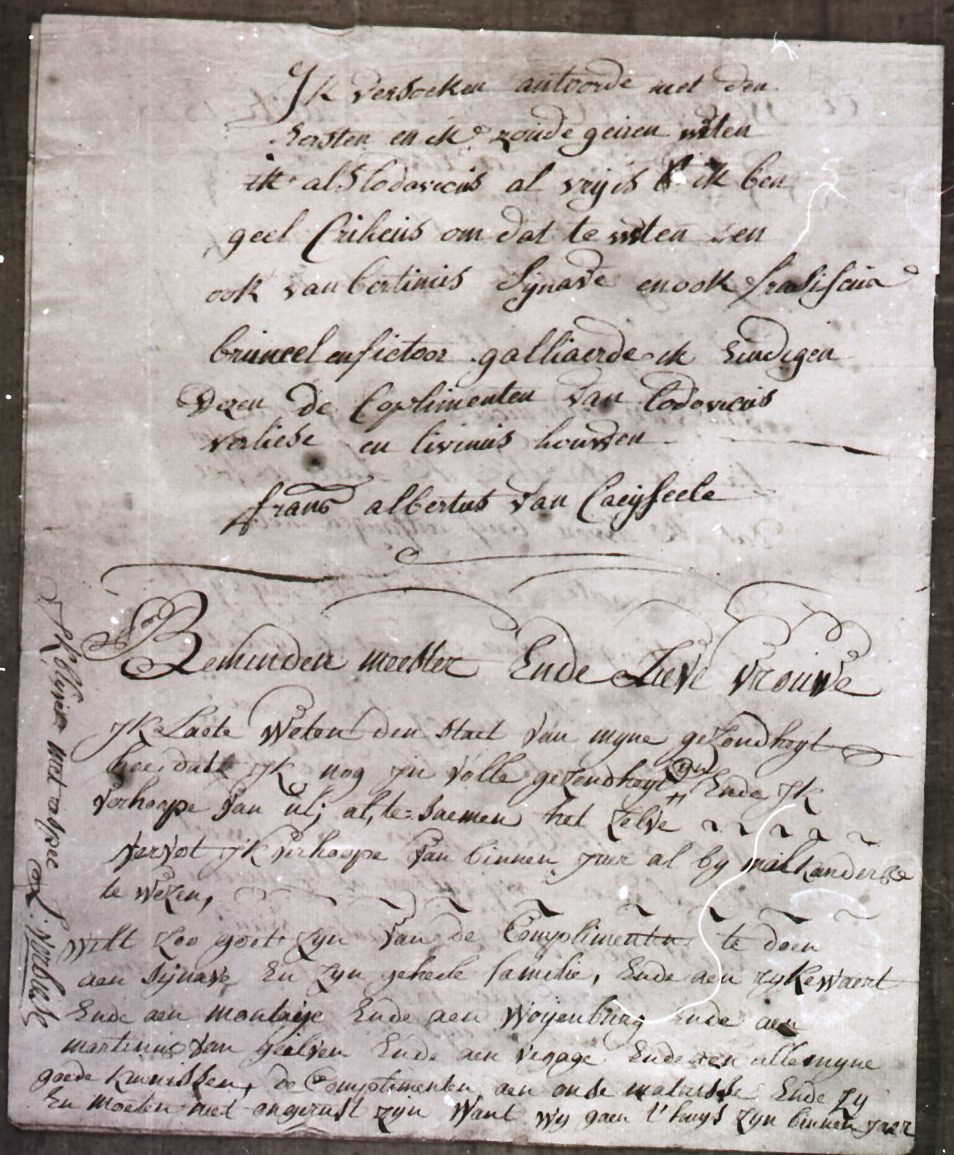 Jk versoeken antvorde met den
eersten en ik zoude geiren witen
ik als Lodovicus al vrij is ik ben
geel Criheus om dat te witen en
ook van bertinus Sijnave en ook
bruneel en fictoor galliaerde ik Eindigen
Dezen de Coplimenten van Lodovicus
verliese en livinus houvden
frans albertus van Caeyseele
Beminden meester Ende Lieve Vrouwe
JK Laete Weten den staet van myne gezondheyt
hoe dat JK nog jn volle gezondheyt ben Ende JK
Verhoope van ul; al te saemen het zelve
Vervot JK verhoope van binnen jaer al by malkanderse
te wezen,
Wilt zoo goet zyn van de Complimenten te doen
aen Sijnave En zyn geheele familie, Ende aen Rykewaert
Ende aen montaije Ende aen Woyenburg Ende aen
martinus van geelven Ende aen vegage Ende aen alle myne
goede kennissen, de Complimenten aen onse matresse Ende zy
En moeten niet ongerust zyn Want Wy gaen t'huys zyn binnen jaer